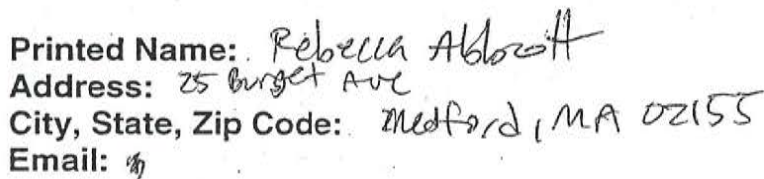 Printed Name: Rebecca Abbott
Address: 25 Burget Ave
City, State, Zip Code: Medford, MA 02155
Email: